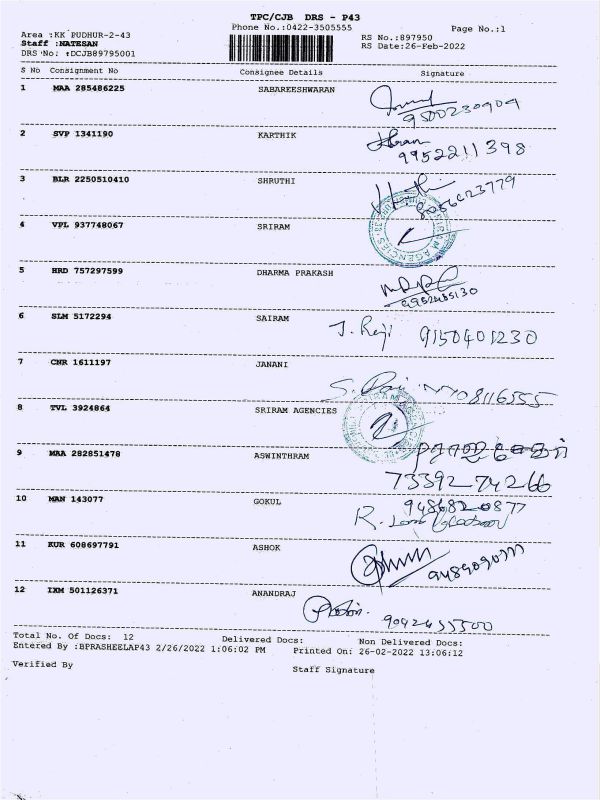 TPC/CJB DRS - P43
Phone No.:0422-3505555
Page No.:1
Area :KK PUDHUR-2-43
Staff :NATESAN
DRS No. :DCJB89795001
RS No.:897950
RS Date:26-Feb-2022
S No Consignment No Consignee Details Signature
1 MAA 285486225 SABAREESHWARAN
9500230909
2 SVP 1341190 KARTHIK
9952211398
3 BLR 2250510410 SHRUTHI
4 VPL 937748067 SRIRAM
5 HRD 757297599 DHARMA PRAKASH
6 SLM 5172294 SAIRAM
J. Reji 9150401230
7 CNR 1611197 JANANI
8 TVL 3924864 SRIRAM AGENCIES
9 MAA 282851478 ASWINTHRAM
73392 74266
10 MAN 143077 GOKUL
9486820877
11 KUR 608697791 ASHOK
12 IXM 501126371 ANANDRAJ
9042455500
Total No. Of Docs: 12 Delivered Docs: Non Delivered Docs:
Entered By :BPRASHEELAP43 2/26/2022 1:06:02 PM Printed On: 26-02-2022 13:06:12
Verified By Staff Signature